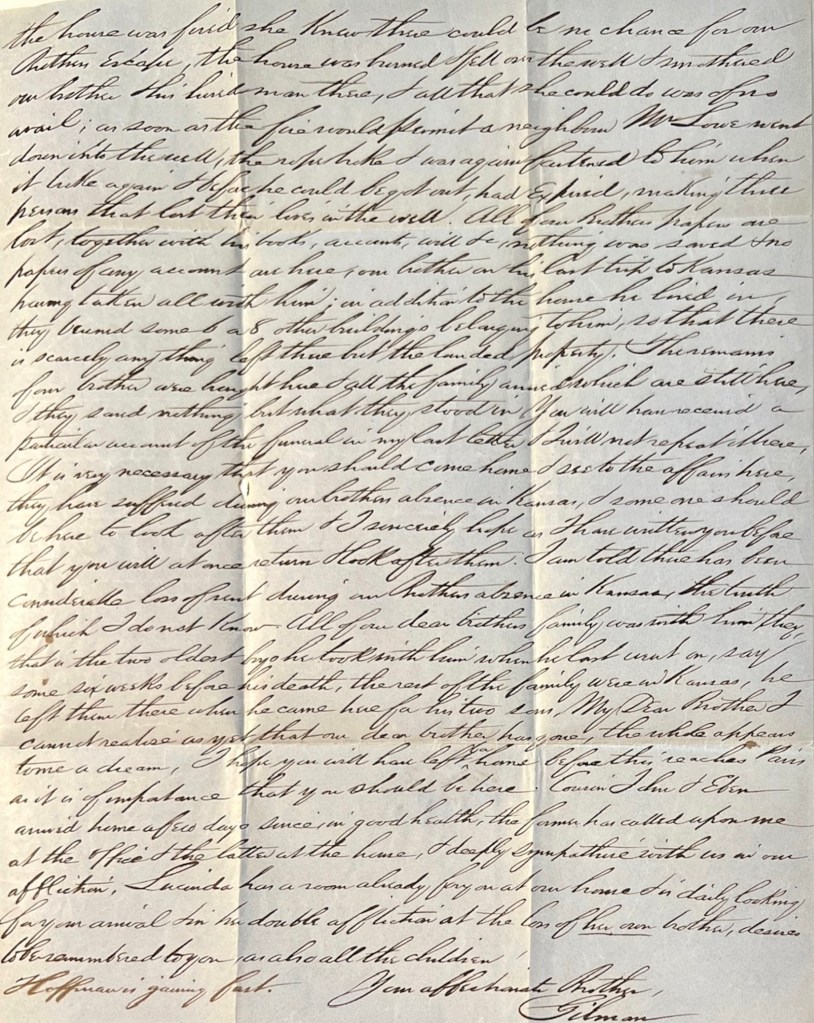 the house was fired she knew there could be no chance for our
Brothers Escape, the house was burned & fell over the well & smothered
our brother & his hired man there, & all that she could do was of no
avail; as soon as the fire would permit a neighbour Mr Lowe went
down into the well, the rope broke & was again fastened to him when
it broke again & before he could be got out, had Expired, making three
persons that lost their lives in the well. All of our Brothers papers are
lost, together with his books, accounts, will &c, nothing was saved & no
papers of any account are here, our brother on his last trip to Kansas
having taken all with him; in addition to the house he lived in,
they burned some 6 or 8 other buildings belonging to him, so that there
is scarcely any thing left there but the landed property. The remains
of our brother were brought here & all the family arrived which are still here,
& they saved nothing but what they stood in. You will have received a
particular account of the funeral in my last letter & I will not repeat it here,
It is very necessary that you should come home & see to the affairs here,
they have suffered during our brothers absence in Kansas, & some one should
be here to look after them & I sincerely hope as I have written you before
that you will at once return & look after them. I am told there has been
considerable loss of rent during our Brothers absence in Kansas, the truth
of which I do not know. All of our dear brothers family was with him they,
that is the two oldest boys he took with him when he last went on, say
some six weeks before his death, the rest of the family were in Kansas, he
left them there when he came here for his two sons. My Dear Brother I
cannot realise as yet, that our dear brother has gone, the whole appears
to me a dream, I hope you will have left for home before this reaches Paris
as it is of importance that you should be here. Cousin John & Eben
arrived home a few days since, in good health, the former has called upon me
at the office & the latter at the house, & deeply sympathise with us in our
affliction, Lucinda has a room already for you at our home & is daily looking
for your arrival & in her double affliction at the loss of her own brother, desires
to be remembered to you, as also all the children,
Hoffman is gaining fast. Your affectionate Brother,
Gilman